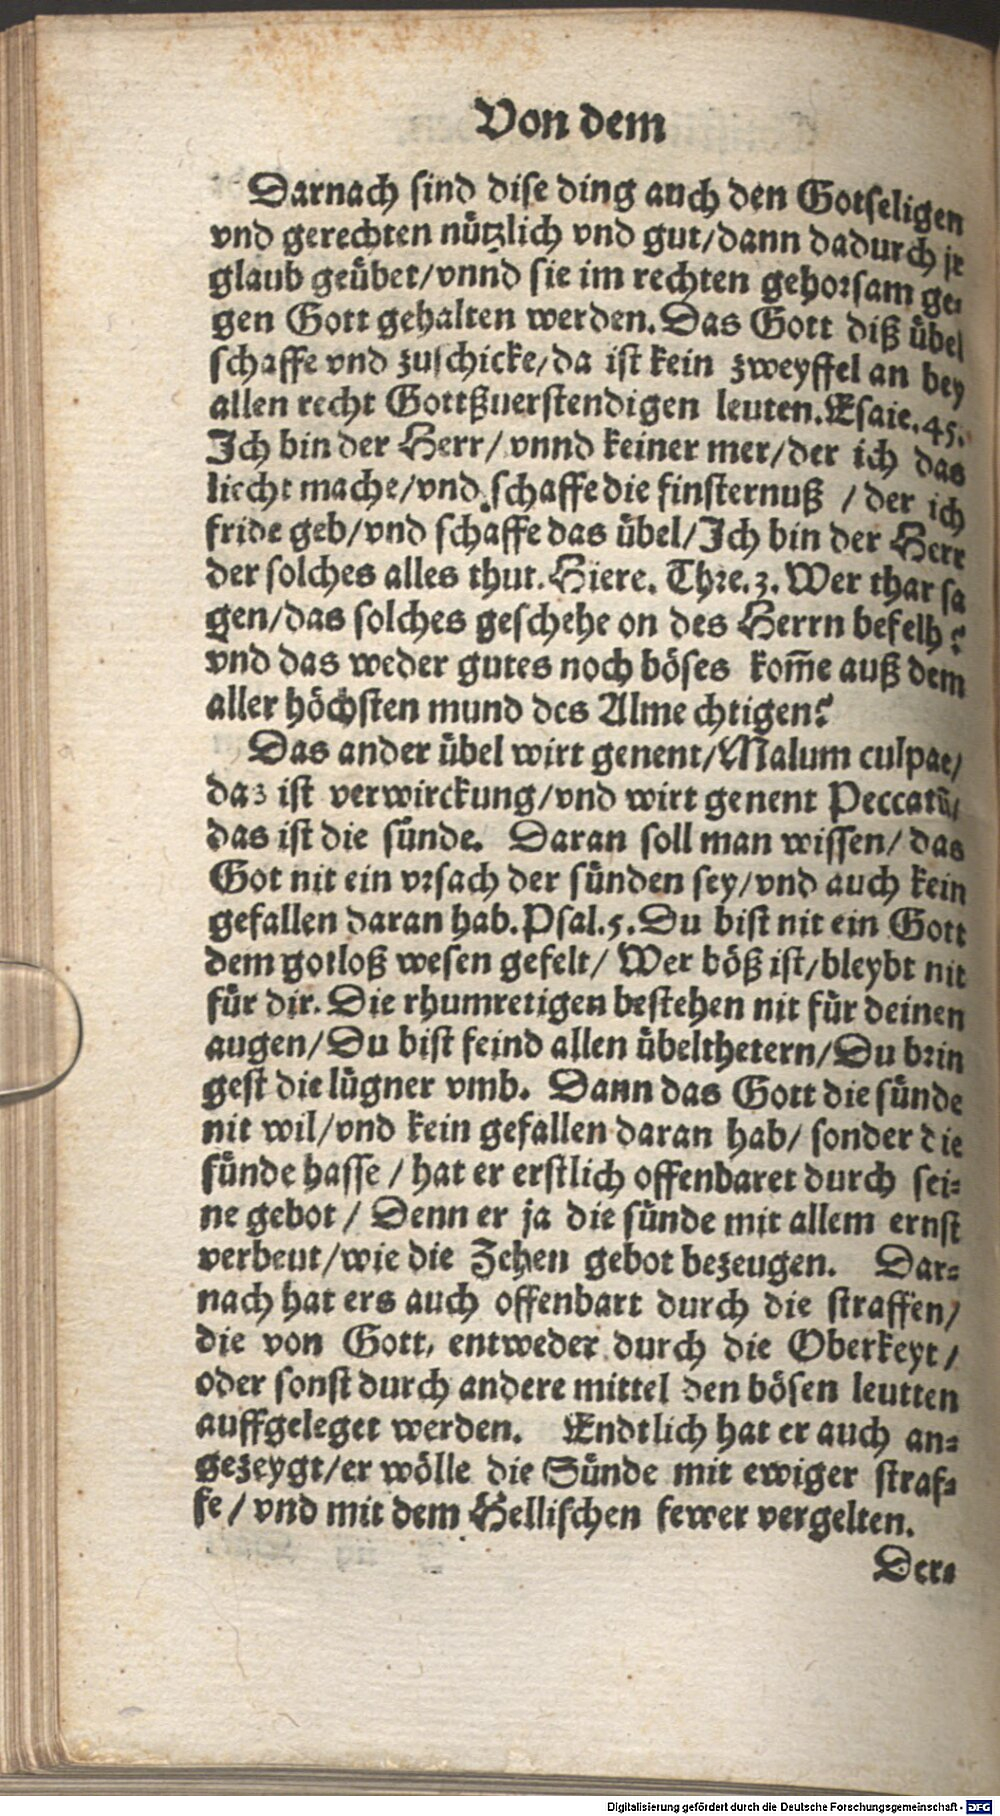 Von dem
Darnach sind dise ding auch den Gotseligen
vnd gerechten nützlich vnd gut/dann dadurch jr
glaub geübet/vnnd sie im rechten gehorsam ge-
gen Gott gehalten werden. Das Gott diß übel
schaffe vnd zuschicke/da ist kein zweyffel an bey
allen recht Gottßuerstendigen leuten. Esaie. 45.
Ich bin der Herr/vnnd keiner mer/der ich das
liecht mache/vnd schaffe die finsternuß /der ich
fride geb/vnd schaffe das übel/Ich bin der Herr
der solches alles thut. Hiere. Thre. 3. Wer thar sa
gen/das solches geschehe on des Herrn befelh?
vnd das weder gutes noch böses kom̄e auß dem
aller höchsten mund des Alme chtigen?
Das ander übel wirt genent/Malum culpae/
daz ist verwirckung/vnd wirt genent Peccatū/
das ist die sünde. Daran soll man wissen/das
Got nit ein vrsach der sünden sey/vnd auch kein
gefallen daran hab. Psal. 5. Du bist nit ein Gott
dem gotloß wesen gefelt/ Wer böß ist/bleybt nit
für dir. Die rhumretigen bestehen nit für deinen
augen/Du bist feind allen übelthetern/Du brin
gest die lügner vmb. Dann das Gott die sünde
nit wil/vnd kein gefallen daran hab/ sonder die
sünde hasse / hat er erstlich offenbaret durch sei-
ne gebot / Denn er ja die sünde mit allem ernst
verbeut/wie die Zehen gebot bezeugen. Dar-
nach hat ers auch offenbart durch die straffen/
die von Gott, entweder durch die Oberkeyt /
oder sonst durch andere mittel den bösen leutten
auffgeleget werden. Endtlich hat er auch an-
gezeygt/er wölle die Sünde mit ewiger straf-
fe / vnd mit dem Hellischen fewer vergelten.
Der-
Digitalisierung gefördert durch die Deutsche Forschungsgemeinschaft - DFG